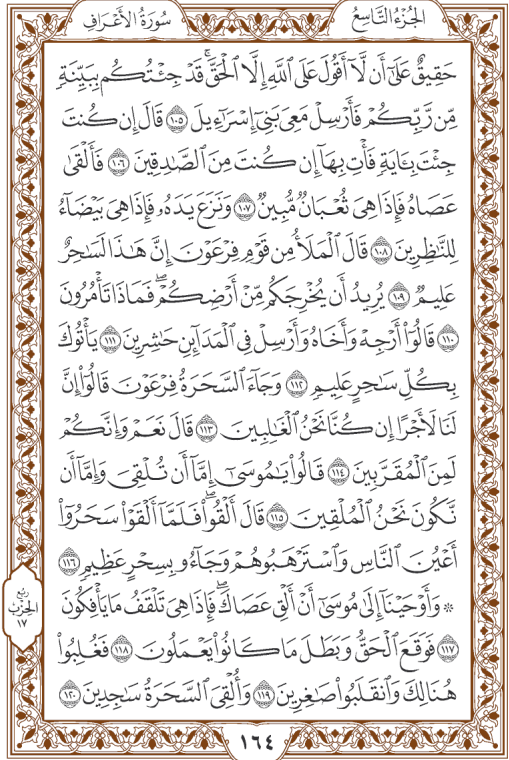 الجُزْءُ التَّاسِعُ
سُورَةُ الأَعْرَافِ
حَقِيقٌ عَلَىٰٓ أَن لَّآ أَقُولَ عَلَى ٱللَّهِ إِلَّا ٱلْحَقَّۚ قَدْ جِئْتُكُم بِبَيِّنَةٍ
مِّن رَّبِّكُمْ فَأَرْسِلْ مَعِىَ بَنِىٓ إِسْرَٰٓءِيلَ ١٠٥ قَالَ إِن كُنتَ
جِئْتَ بِـَٔايَةٍ فَأْتِ بِهَآ إِن كُنتَ مِنَ ٱلصَّٰدِقِينَ ١٠٦ فَأَلْقَىٰ
عَصَاهُ فَإِذَا هِىَ ثُعْبَانٌ مُّبِينٌ ١٠٧ وَنَزَعَ يَدَهُۥ فَإِذَا هِىَ بَيْضَآءُ
لِلنَّٰظِرِينَ ١٠٨ قَالَ ٱلْمَلَأُ مِن قَوْمِ فِرْعَوْنَ إِنَّ هَٰذَا لَسَٰحِرٌ
عَلِيمٌ ١٠٩ يُرِيدُ أَن يُخْرِجَكُم مِّنْ أَرْضِكُمْۖ فَمَاذَا تَأْمُرُونَ
١١٠ قَالُوٓا۟ أَرْجِهْ وَأَخَاهُ وَأَرْسِلْ فِى ٱلْمَدَآئِنِ حَٰشِرِينَ ١١١ يَأْتُوكَ
بِكُلِّ سَٰحِرٍ عَلِيمٍ ١١٢ وَجَآءَ ٱلسَّحَرَةُ فِرْعَوْنَ قَالُوٓا۟ إِنَّ
لَنَا لَأَجْرًا إِن كُنَّا نَحْنُ ٱلْغَٰلِبِينَ ١١٣ قَالَ نَعَمْ وَإِنَّكُمْ
لَمِنَ ٱلْمُقَرَّبِينَ ١١٤ قَالُوا۟ يَٰمُوسَىٰٓ إِمَّآ أَن تُلْقِىَ وَإِمَّآ أَن
نَّكُونَ نَحْنُ ٱلْمُلْقِينَ ١١٥ قَالَ أَلْقُوا۟ۖ فَلَمَّآ أَلْقَوْا۟ سَحَرُوٓا۟
أَعْيُنَ ٱلنَّاسِ وَٱسْتَرْهَبُوهُمْ وَجَآءُو بِسِحْرٍ عَظِيمٍ ١١٦
۞ وَأَوْحَيْنَآ إِلَىٰ مُوسَىٰٓ أَنْ أَلْقِ عَصَاكَۖ فَإِذَا هِىَ تَلْقَفُ مَا يَأْفِكُونَ
١١٧ فَوَقَعَ ٱلْحَقُّ وَبَطَلَ مَا كَانُوا۟ يَعْمَلُونَ ١١٨ فَغُلِبُوا۟
هُنَالِكَ وَٱنقَلَبُوا۟ صَٰغِرِينَ ١١٩ وَأُلْقِىَ ٱلسَّحَرَةُ سَٰجِدِينَ ١٢٠
ربع
الحِزْب
١٧
١٦٤